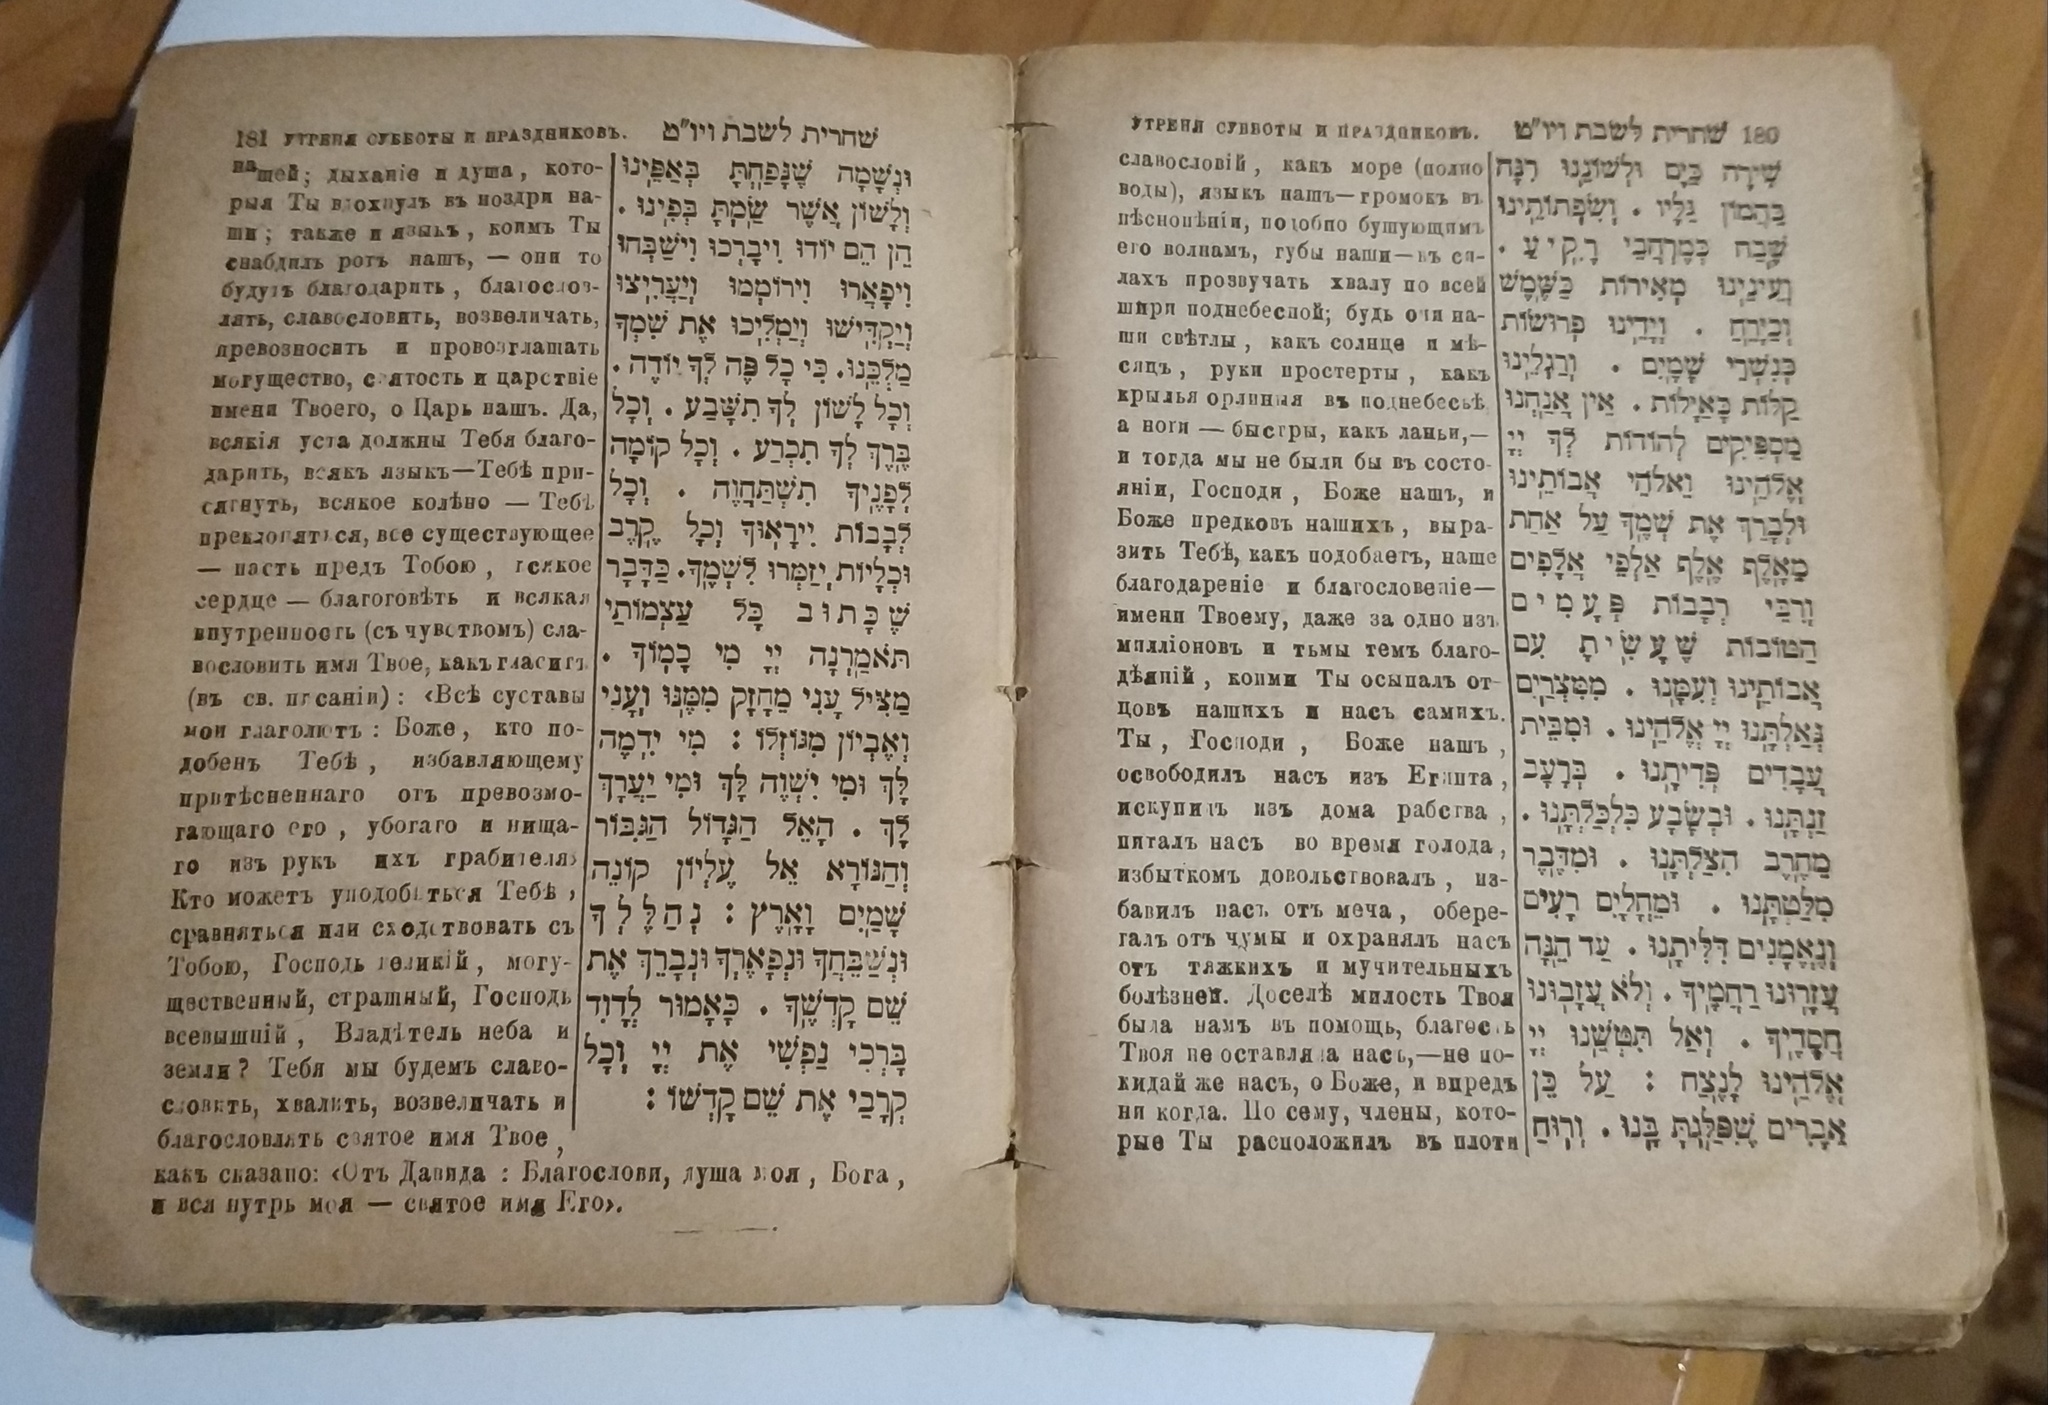 УТРЕНЯ СУББОТЫ И ПРАЗДНИКОВЪ. שחרית לשבת ויו"ט 180
שִׁירָה כַּיָּם וּלְשׁוֹנֵנוּ רִנָּה
כַּהֲמוֹן גַּלָּיו . וְשִׂפְתוֹתֵינוּ
שֶׁבַח כְּמֶרְחֲבֵי רָקִיעַ .
וְעֵינֵינוּ מְאִירוֹת כַּשֶּׁמֶשׁ
וְכַיָּרֵחַ . וְיָדֵינוּ פְרוּשׂוֹת
כְּנִשְׁרֵי שָׁמָיִם . וְרַגְלֵינוּ
קַלּוֹת כָּאַיָּלוֹת . אֵין אֲנַחְנוּ
מַסְפִּיקִים לְהוֹדוֹת לְךָ יְיָ
אֱלֹהֵינוּ וֵאלֹהֵי אֲבוֹתֵינוּ
וּלְבָרֵךְ אֶת שְׁמֶךָ עַל אַחַת
מֵאָלֶף אֶלֶף אַלְפֵי אֲלָפִים
וְרִבֵּי רְבָבוֹת פְּעָמִים
הַטּוֹבוֹת שֶׁעָשִׂיתָ עִם
אֲבוֹתֵינוּ וְעִמָּנוּ . מִמִּצְרַיִם
גְּאַלְתָּנוּ יְיָ אֱלֹהֵינוּ . וּמִבֵּית
עֲבָדִים פְּדִיתָנוּ . בְּרָעָב
זַנְתָּנוּ . וּבְשָׂבָע כִּלְכַּלְתָּנוּ .
מֵחֶרֶב הִצַּלְתָּנוּ . וּמִדֶּבֶר
מִלַּטְתָּנוּ . וּמֵחֳלָיִם רָעִים
וְנֶאֱמָנִים דִּלִּיתָנוּ . עַד הֵנָּה
עֲזָרוּנוּ רַחֲמֶיךָ . וְלֹא עֲזָבוּנוּ
חֲסָדֶיךָ . וְאַל תִּטְּשֵׁנוּ יְיָ
אֱלֹהֵינוּ לָנֶצַח : עַל כֵּן
אֵבָרִים שֶׁפִּלַּגְתָּ בָּנוּ . וְרוּחַ
славословій, какъ море (полно
воды), языкъ нашъ—громокъ въ
пѣснопѣніи, подобно бушующимъ
его волнамъ, губы наши—въ си-
лахъ прозвучать хвалу по всей
шири поднебесной; будь очи на-
ши свѣтлы, какъ солнце и мѣ-
сяцъ, руки простерты, какъ
крылья орлиныя въ поднебесьѣ
а ноги — быстры, какъ ланьи,—
и тогда мы не были бы въ состо-
яніи, Господи, Боже нашъ, и
Боже предковъ нашихъ, выра-
зить Тебѣ, какъ подобаетъ, наше
благодареніе и благословеніе—
имени Твоему, даже за одно изъ
милліоновъ и тьмы темъ благо-
дѣяній, коими Ты осыпалъ от-
цовъ нашихъ и насъ самихъ.
Ты, Господи, Боже нашъ,
освободилъ насъ изъ Египта,
искупилъ изъ дома рабства,
питалъ насъ во время голода,
избыткомъ довольствовалъ, из-
бавилъ насъ отъ меча, обере-
галъ отъ чумы и охранялъ насъ
отъ тяжкихъ и мучительныхъ
болѣзней. Доселѣ милость Твоя
была намъ въ помощь, благость
Твоя не оставляла насъ,—не по-
кидай же насъ, о Боже, и впредь
ни когда. По сему, члены, кото-
рые Ты расположилъ въ плоти
181 УТРЕНЯ СУББОТЫ И ПРАЗДНИКОВЪ. שחרית לשבת ויו"ט
וּנְשָׁמָה שֶׁנָּפַחְתָּ בְּאַפֵּינוּ
וְלָשׁוֹן אֲשֶׁר שַׂמְתָּ בְּפִינוּ .
הֵן הֵם יוֹדוּ וִיבָרְכוּ וִישַׁבְּחוּ
וִיפָאֲרוּ וִירוֹמְמוּ וְיַעֲרִיצוּ
וְיַקְדִּישׁוּ וְיַמְלִיכוּ אֶת שִׁמְךָ
מַלְכֵּנוּ. כִּי כָל פֶּה לְךָ יוֹדֶה .
וְכָל לָשׁוֹן לְךָ תִשָּׁבַע . וְכָל
בֶּרֶךְ לְךָ תִכְרַע . וְכָל קוֹמָה
לְפָנֶיךָ תִשְׁתַּחֲוֶה . וְכָל
לְבָבוֹת יִירָאוּךָ וְכָל קֶרֶב
וּכְלָיוֹת יְזַמְּרוּ לִשְׁמֶךָ. כַּדָּבָר
שֶׁכָּתוּב כָּל עַצְמוֹתַי
תֹּאמַרְנָה יְיָ מִי כָמוֹךָ .
מַצִּיל עָנִי מֵחָזָק מִמֶּנּוּ וְעָנִי
וְאֶבְיוֹן מִגּוֹזְלוֹ : מִי יִדְמֶה
לָּךְ וּמִי יִשְׁוֶה לָּךְ וּמִי יַעֲרָךְ
לָךְ . הָאֵל הַגָּדוֹל הַגִּבּוֹר
וְהַנּוֹרָא אֵל עֶלְיוֹן קוֹנֵה
שָׁמַיִם וָאָרֶץ : נְהַלֶּלְךָ
וּנְשַׁבֵּחֲךָ וּנְפָאֶרְךָ וּנְבָרֵךְ אֶת
שֵׁם קָדְשֶׁךָ . כָּאָמוּר לְדָוִד
בָּרְכִי נַפְשִׁי אֶת יְיָ וְכָל
קְרָבַי אֶת שֵׁם קָדְשׁוֹ :
нашей; дыханіе и душа, кото-
рыя Ты вдохнулъ въ ноздри на-
ши; также и языкъ, коимъ Ты
снабдилъ ротъ нашъ, — они то
будутъ благодарить, благослов-
лять, славословить, возвеличать,
превозносить и провозглашать
могущество, святость и царствіе
имени Твоего, о Царь нашъ. Да,
всякія уста должны Тебя благо-
дарить, всякъ языкъ—Тебѣ при-
сягнуть, всякое колѣно — Тебѣ
преклоняться, все существующее
— пасть предъ Тобою, всякое
сердце — благоговѣть и всякая
внутренность (съ чувствомъ) сла-
вословить имя Твое, какъ гласитъ
(въ св. писаніи): «Всѣ суставы
мои глаголютъ: Боже, кто по-
добенъ Тебѣ, избавляющему
притѣсненнаго отъ превозмо-
гающаго его, убогаго и нища-
го изъ рукъ ихъ грабителя»
Кто можетъ уподобиться Тебѣ,
сравняться или сходствовать съ
Тобою, Господь великій, могу-
щественный, страшный, Господь
всевышній, Владѣтель неба и
земли? Тебя мы будемъ славо-
словить, хвалить, возвеличать и
благословлять святое имя Твое,
какъ сказано: «Отъ Давида: Благослови, душа моя, Бога,
и вся нутрь моя — святое имя Его».